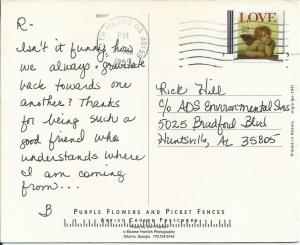 R-
Isn't it funny how
we always gravitate
back towards one
another? Thanks
for being such a
good friend who
understands where
I am coming
from...
B
PM
1997
LOVE
Rick Hill
c/o ADS Environmental Svcs
5025 Bradford Blvd
Huntsville, AL 35805
PURPLE FLOWERS AND PICKET FENCES
ARTIST CHOICE POSTCARDS
© Bloome Freelich Photography
Atlanta, Georgia